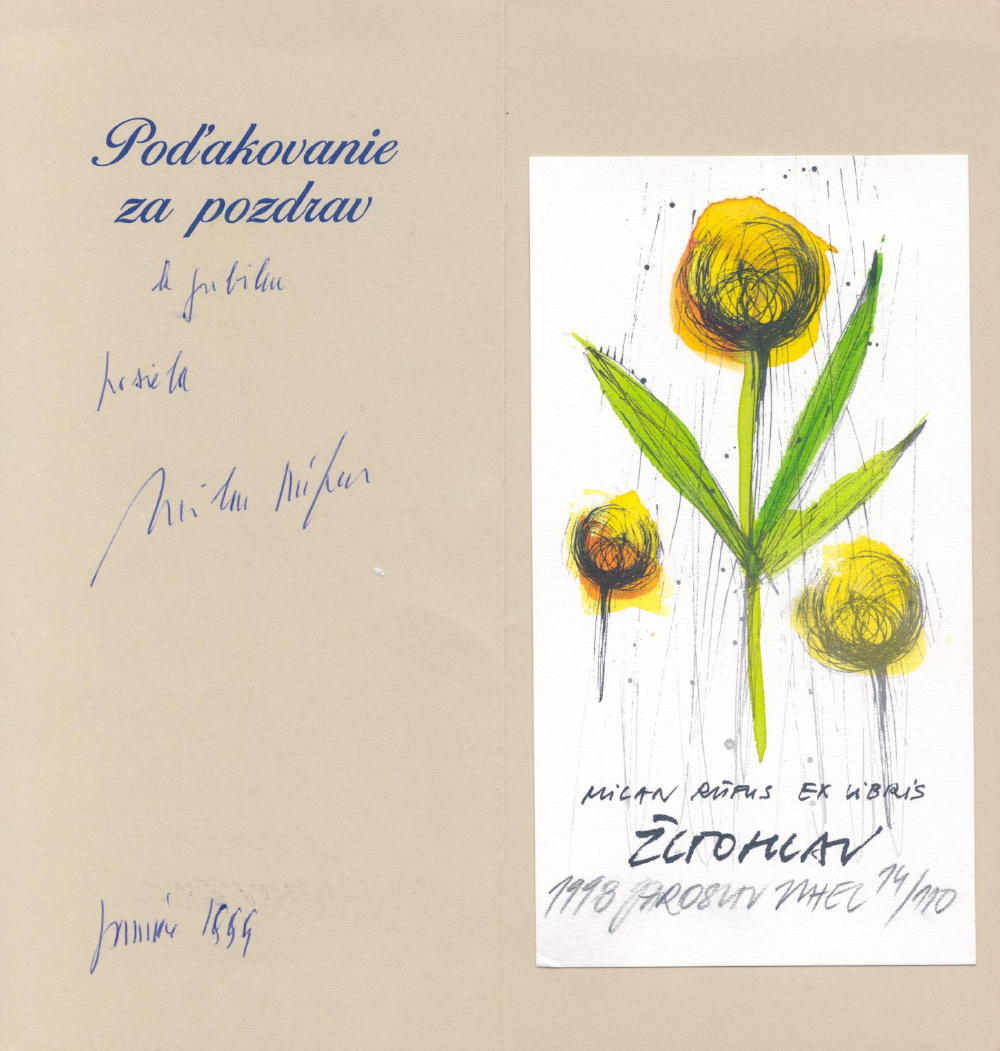 Poďakovanie
za pozdrav
k jubileu
posiela
Milan Rúfus
január 1999
MILAN RÚFUS EX LIBRIS
ŽLTOHLAV
1998 JAROSLAV UHEL 14/110